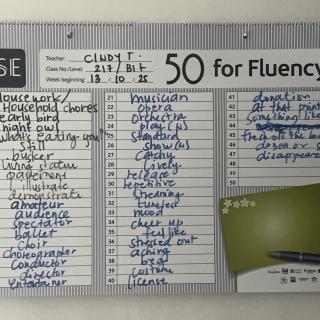 SE
Teacher: CINDY T.
Class No./Level: 217/B1F
Week beginning: 13.10.25
50 for Fluency
Housework/
Household chores
early bird
night owl
what's eating you?
still
busker
living statue
pavement
illustrate
demonstrate
amateur
audience
spectator
ballet
choir
choreographer
conductor
director
entertainer
21 musician
22 opera
23 orchestra
24 play (n)
25 standard
26 show (n)
27 catchy
28 lively
29 release
30 repetitive
31 streaming
32 tuneful
33 mood
34 cheer up
35 feel like
36 stressed out
37 aching
38 beat
39 costume
40 license
41 donation
42 at that point
43 something like
44
45 the
46 dozen or s
47 disappeare
48
49
50